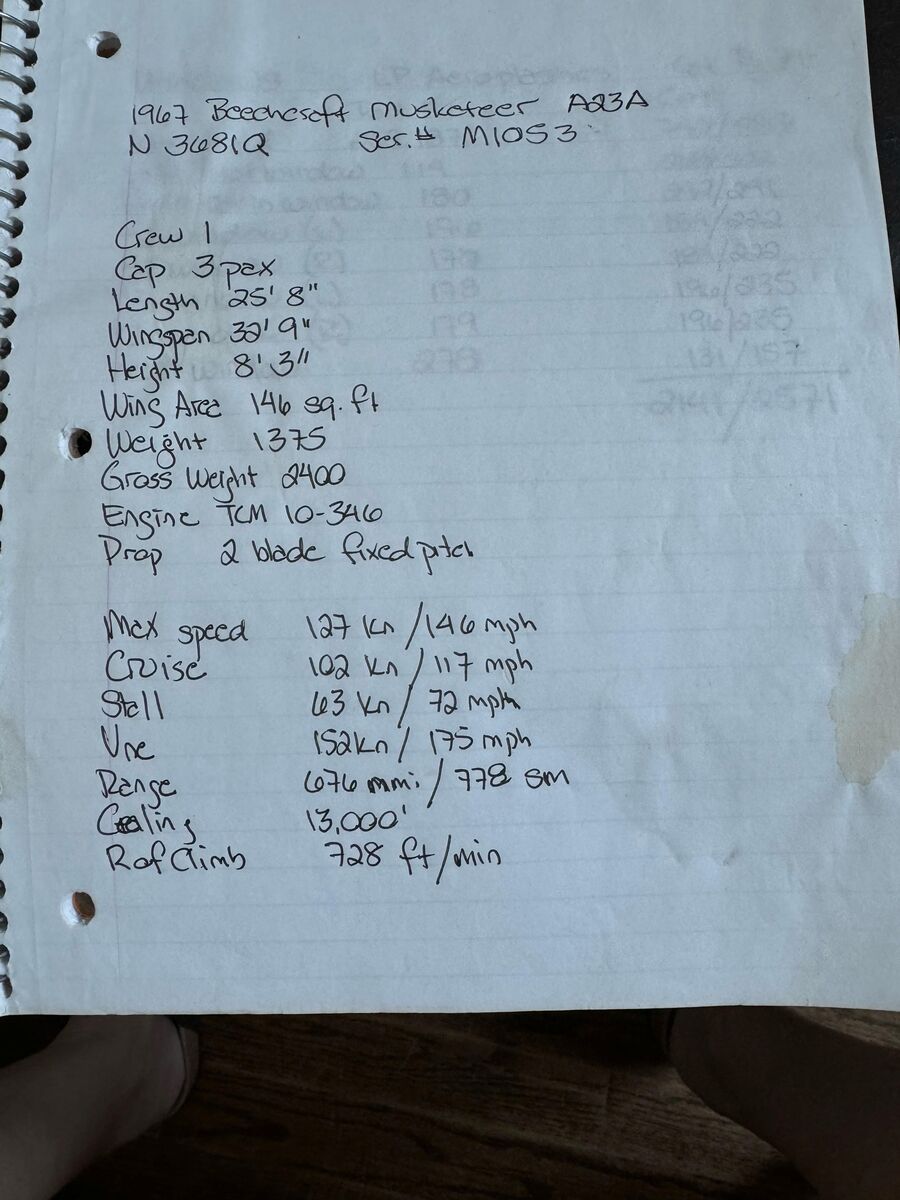 1967 Beechcraft Musketeer A23A
N 3681Q Ser.# M1053
Crew 1
Cap 3 pax
Length 25' 8"
Wingspan 32' 9"
Height 8' 3"
Wing Area 146 sq. ft
Weight 1375
Gross Weight 2400
Engine TCM 10-346
Prop 2 blade fixed pitch
Max speed 127 Kn / 146 mph
Cruise 102 Kn / 117 mph
Stall 63 Kn / 72 mph
Vne 152Kn / 175 mph
Range 676 nmi / 778 sm
Ceiling 13,000'
R of Climb 728 ft/min